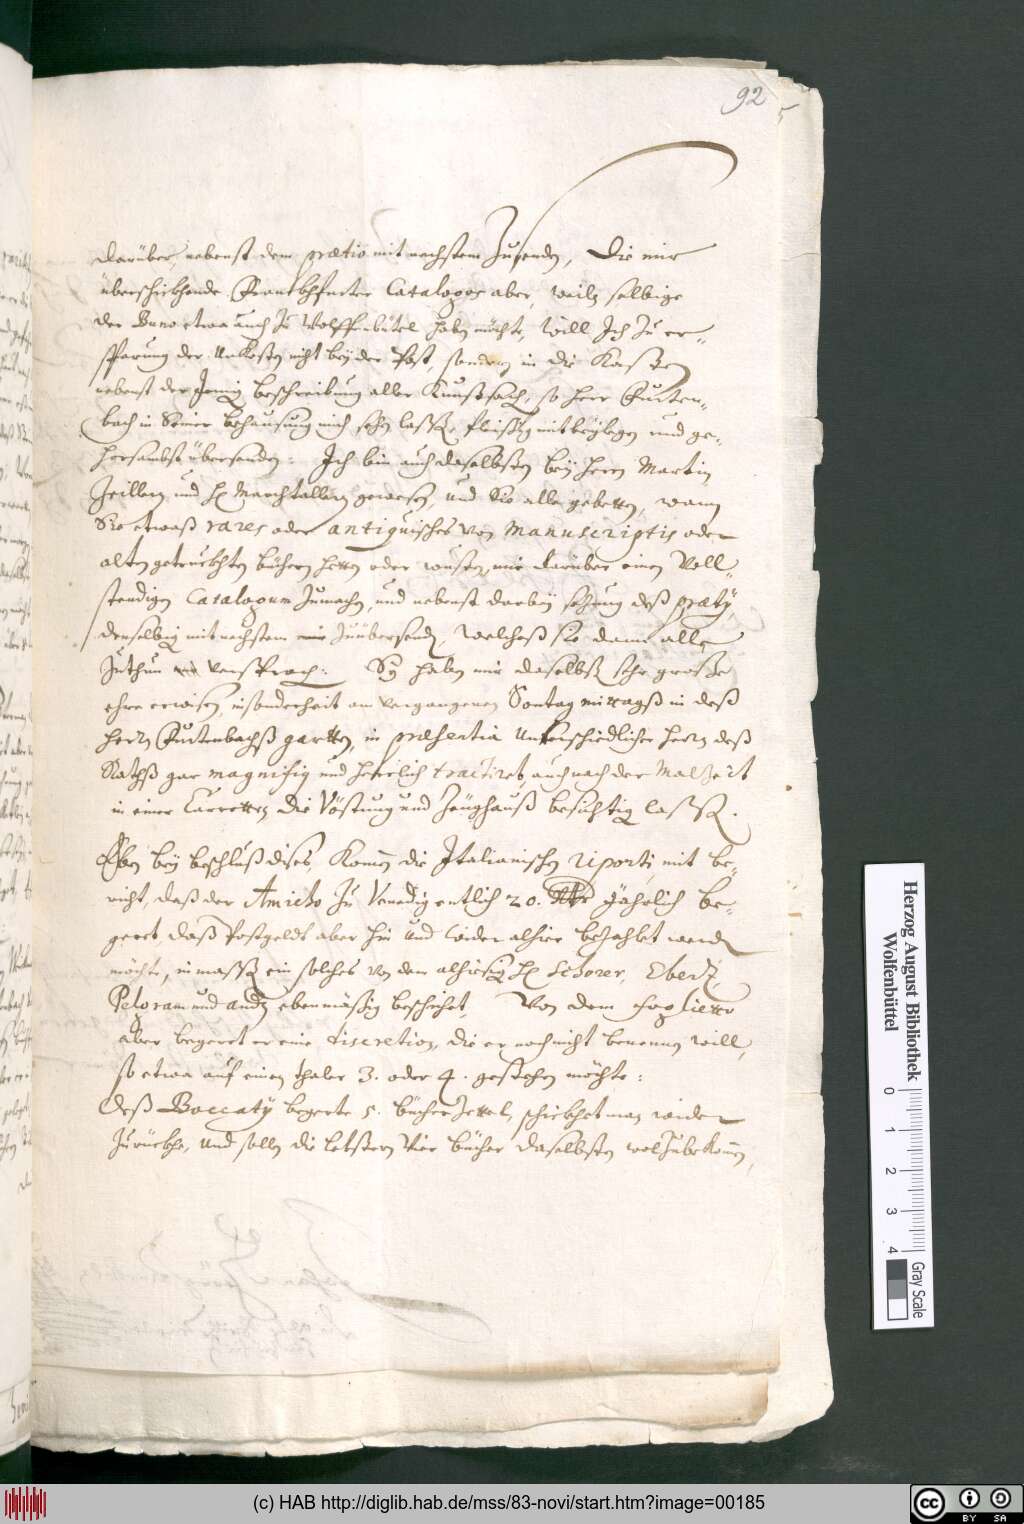 92
darüber, nebenst dem prætio mit nechstem Zusenden, Die mir
überschickhende Franckhfurter Catalogos aber, weiln selbige
der Buno etwa auch Zu Wolffenbütel haben möchte, Will Ich Zu er-
sparung der Unkosten nicht bey der Post, sondern in die Kasten
nebenst der Jenig beschreibung aller Kunstsachen, so Herr Furten-
bach in Seiner behausung mich sehen lassen, fleissig mit beylegen und ge-
horsambst übersenden: Ich bin auch daselbsten bey Herrn Martin
Zeillern und H. Marchtallern gewesen, und Sie alle gebetten, wann
Sie etwaß rares oder antiquisches von Manuscriptis oder
alten getruckhten büchern hetten oder wusten, mir darüber einen Voll-
stendigen Catalogum Zumachen, und nebenst darbey sezung deß prætij,
denselbigen mit nechstem mir Zuübersenden, Welcheß sie dann alle
Zuthun versprochen: Sie haben mir daselbst sehr grosse
ehre erwisen, insonderheit am vergangenen Sontag mittagß in deß
Herrn Furtenbachß gartten, in præsentia Unterschiedlicher Herrn deß
Rathß gar magnifiq und herrlich tractiret, auch nach der Malzeit
in einer Carretten die Vöstung und Zeüghauß besichtigen lassen.
Eben bey beschluß dises, Komen die Italianischen riporti, mit be-
richt, daß der Amicho Zu Venedig entlich 20. Jährlich be-
geert, daß Postgeldt aber hin und wider alhier bezahlt werden
möchte, in massen ein solches von dem alhiesigen H. Schorer, Eberz,
Pelgram und andern ebenmässig beschiehet, Von dem foglietto
Aber begeret er eine discretion, die er noch nicht benennen will,
so etwa auf einen thaler 3. oder 4. gestehen möchte:
Deß Boccatij begerte 5. bücher Zettel, schickhet man wider
Zurückhe, und sollen die letstern Vier bücher daselbsten wol Zubekomen,
Herzog August Bibliothek
Wolfenbüttel
0 1 2 3 4
Gray Scale
(c) HAB http://diglib.hab.de/mss/83-novi/start.htm?image=00185
cc BY SA